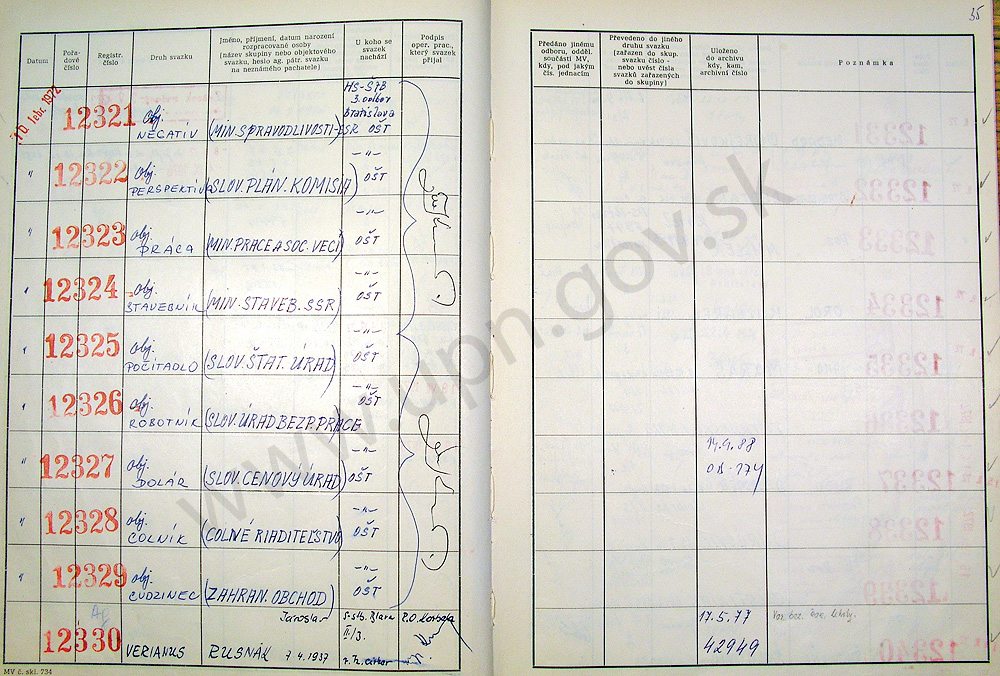 35
Datum
Pořadové číslo
Registr. číslo
Druh svazku
Jméno, příjmení, datum narození rozpracované osoby
(název skupiny nebo objektového svazku, heslo ag. pátr. svazku na neznámého pachatele)
U koho se svazek nachází
Podpis oper. prac., který svazek přijal
Předáno jinému odboru, odděl. součásti MV, kdy, pod jakým čís. jednacím
Převedeno do jiného druhu svazku (zařazen do skup. svazku číslo - nebo uvést čísla svazků zařazených do skupiny)
Uloženo do archivu kdy, kam, archivní číslo
Poznámka
10. febr. 1972
12321 obj. NEGATÍV (MIN. SPRAVODLIVOSTI-SSR HS-ŠTB 3. odbor Bratislava OŠT
" 12322 obj. PERSPEKTÍVA (SLOV. PLÁN. KOMISIA) -"- OŠT
" 12323 obj. PRÁCA (MIN. PRACE A SOC. VECÍ) -"- OŠT
" 12324 obj. STAVEBNÍK (MIN. STAVEB. SSR) -"- OŠT
" 12325 obj. POČÍTADLO (SLOV. ŠTAT. ÚRAD) -"- OŠT
" 12326 obj. ROBOTNÍK (SLOV. ÚRAD BEZP. PRÁCE -"- OŠT
" 12327 obj. DOLÁR (SLOV. CENOVÝ ÚRAD) -"- OŠT 14.9.88 OB-174
" 12328 obj. COLNÍK (COLNÉ RIADITEĽSTVO -"- OŠT
" 12329 obj. CUDZINEC (ZAHRAN. OBCHOD) -"- OŠT
12330 VERIANUS Jaroslav RUSNÁK 7.4.1937 17.5.77 42949
MV č. skl. 734
www.upn.gov.sk